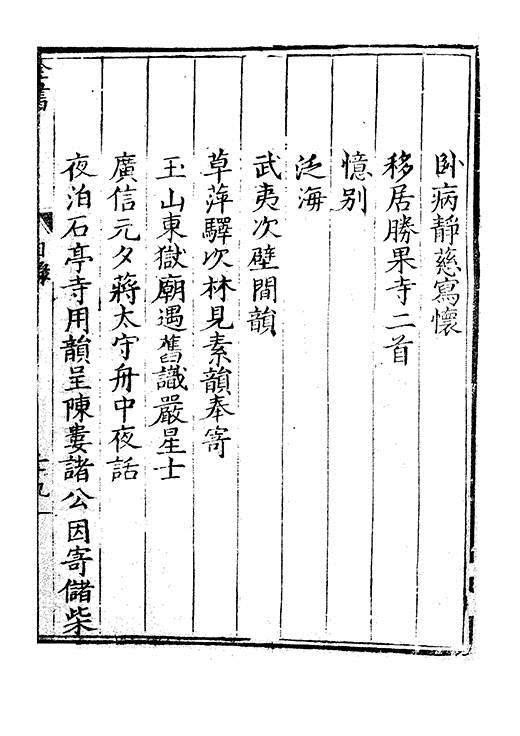 卧病靜慈寫懷
移居勝果寺二首
憶别
泛海
武夷次壁間韻
草萍驛次林見素韻奉寄
玉山東嶽廟遇舊識嚴星士
廣信元夕蔣太守舟中夜話
夜泊石亭寺用韻呈陳婁諸公因寄儲柴
全書
目錄